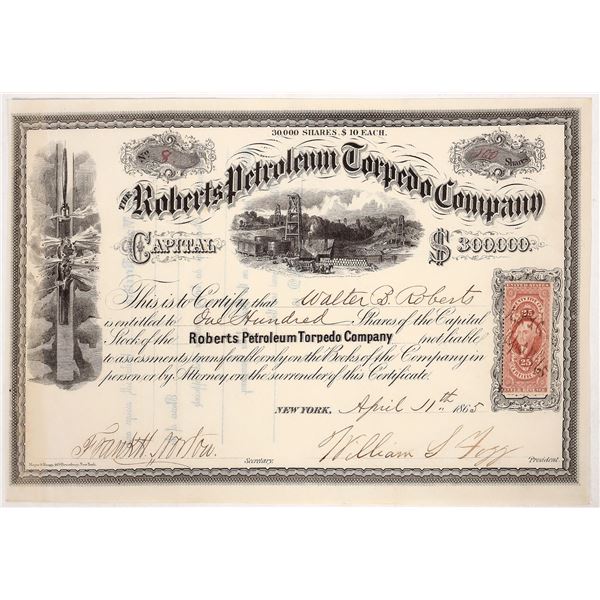 30,000 SHARES, $10 EACH.
No. 8
100 Shares
THE Roberts Petroleum Torpedo Company
CAPITAL $300,000.
This is to Certify that Walter B. Roberts
is entitled to One Hundred Shares of the Capital
Stock of the Roberts Petroleum Torpedo Company not liable
to assessments, transferable only on the Books of the Company in
person or by Attorney on the surrender of this Certificate.
NEW YORK, April 11th 1865
Frank H. Norton William S Fogg
Secretary. President.
UNITED STATES
25 25
INTER. REVENUE